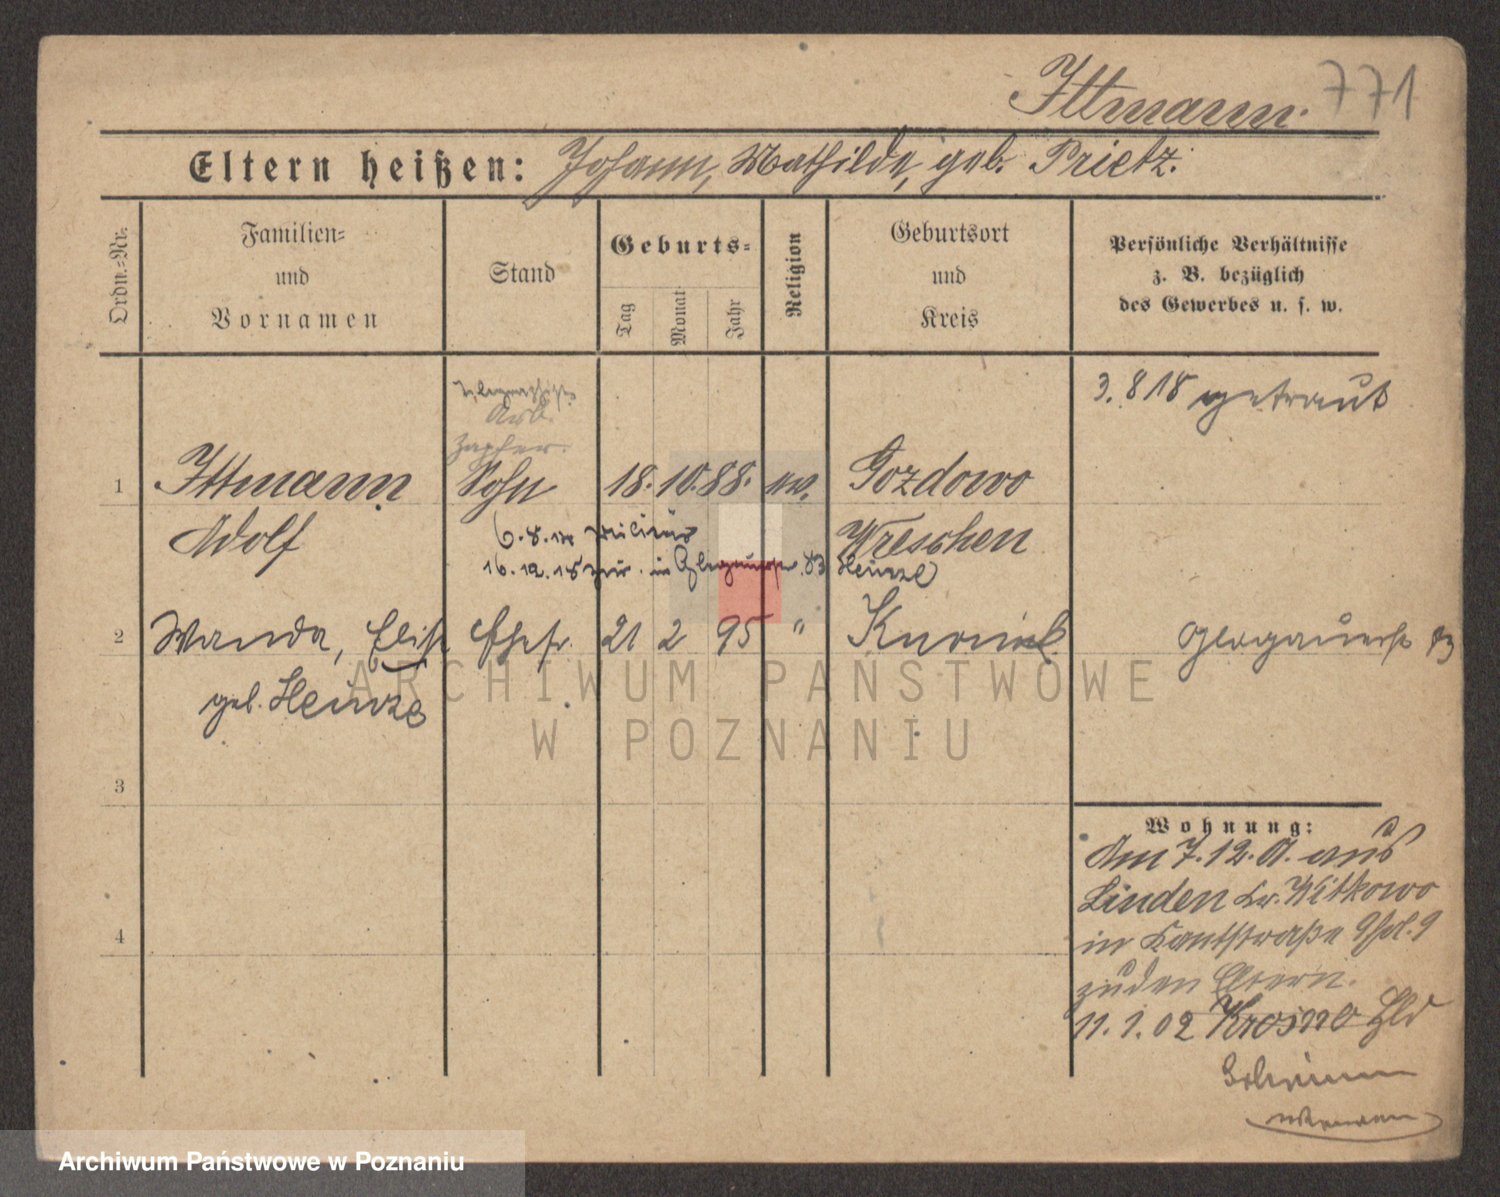 Ittmann. 771
Eltern heißen: Johann, Mathilde, geb. Prietz.
Ordn.-Nr.
Familien-
und
Vornamen
Stand
Geburts-
Tag
Monat
Jahr
Religion
Geburtsort
und
Kreis
Persönliche Verhältnisse
z. B. bezüglich
des Gewerbes u. s. w.
3. 8 18 getraut
Zapfer.
1 Ittmann Sohn 18. 10. 88. ev. Gozdowo
Adolf Wreschen
6. 8. Militär
16. 12. 18 zur. in Glogauerstr. 83 Heinze
2 Wanda, Elise Ehefr. 21 2 95 " Glogauerstr 83
geb. Heinze
ARCHIWUM PAŃSTWOWE
W POZNANIU
3
Wohnung:
Am 7. 12. 01. aus
Linden Kr. Witkowo
in Kantstraße 9
4
zu den Eltern.
11. 1. 02
Archiwum Państwowe w Poznaniu